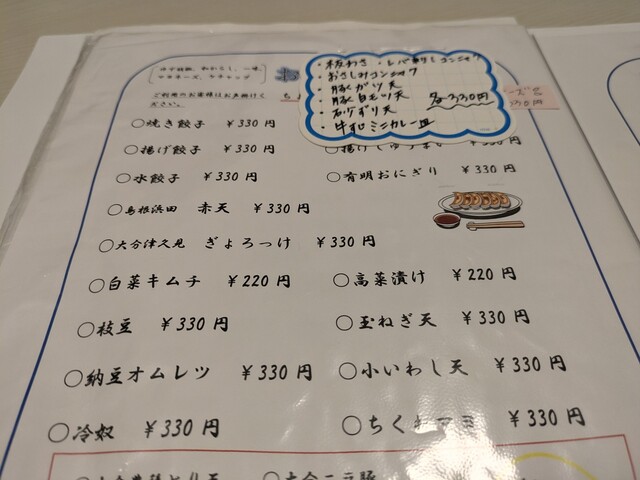 ・板わさ・レバ刺しコンニャク
・おさしみコンニャク
・豚ガツ天
・豚白モツ天 各330円
・砂ずり天
・牛すじミニカレー皿
マヨネーズ、ケチャップ
ご利用のお客様はお声掛けください。
○焼き餃子 ￥330円
○揚げ餃子 ￥330円
○水餃子 ￥330円
○有明おにぎり ￥330円
○島根浜田 赤天 ￥330円
○大分津久見 ぎょろっけ ￥330円
○白菜キムチ ￥220円
○高菜漬け ￥220円
○枝豆 ￥330円
○玉ねぎ天 ￥330円
○納豆オムレツ ￥330円
○小いわし天 ￥330円
○冷奴 ￥330円
○ちく ￥330円